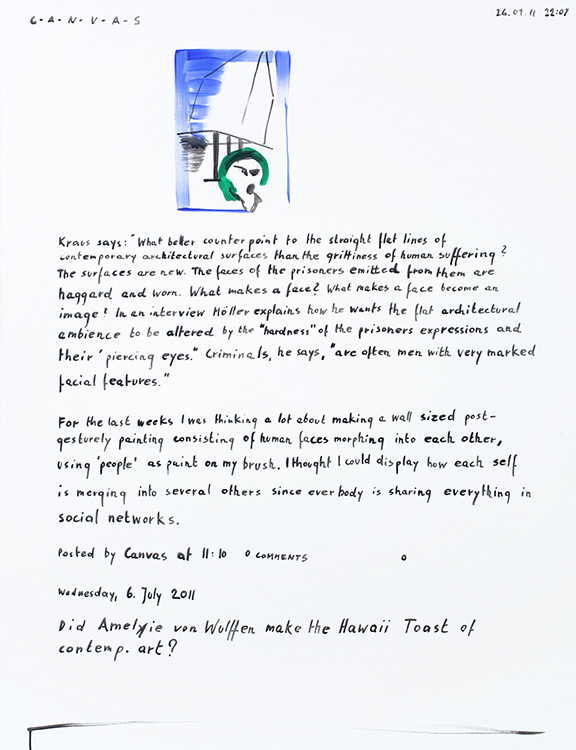 C-A-N-V-A-S
26.09.11 22:07
Kraus says: "What better counterpoint to the straight flat lines of
contemporary architectural surfaces than the grittiness of human suffering?
The surfaces are new. The faces of the prisoners emitted from them are
haggard and worn. What makes a face? What makes a face become an
image? In an interview Höller explains how he wants the flat architectural
ambience to be altered by the "hardness" of the prisoners expressions and
their 'piercing eyes." Criminals, he says, "are often men with very marked
facial features."
For the last weeks I was thinking a lot about making a wall sized post-
gesturely painting consisting of human faces morphing into each other,
using 'people' as paint on my brush. I thought I could display how each self
is merging into several others since everbody is sharing everything in
social networks.
Posted by Canvas at 11:10 0 COMMENTS
Wednesday, 6. July 2011
Did Amelyie von Wulffen make the Hawaii Toast of
contemp. art?